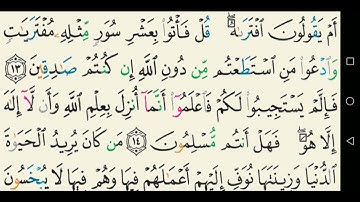 أَمْ يَقُولُونَ ٱفْتَرَىٰهُ ۖ قُلْ فَأْتُوا۟ بِعَشْرِ سُوَرٍ مِّثْلِهِۦ مُفْتَرَيَٰتٍ
وَٱدْعُوا۟ مَنِ ٱسْتَطَعْتُم مِّن دُونِ ٱللَّهِ إِن كُنتُمْ صَٰدِقِينَ ١٣
فَإِلَّمْ يَسْتَجِيبُوا۟ لَكُمْ فَٱعْلَمُوٓا۟ أَنَّمَآ أُنزِلَ بِعِلْمِ ٱللَّهِ وَأَن لَّآ إِلَٰهَ
إِلَّا هُوَ ۖ فَهَلْ أَنتُم مُّسْلِمُونَ ١٤ مَن كَانَ يُرِيدُ ٱلْحَيَوٰةَ
ٱلدُّنْيَا وَزِينَتَهَا نُوَفِّ إِلَيْهِمْ أَعْمَٰلَهُمْ فِيهَا وَهُمْ فِيهَا لَا يُبْخَسُونَ